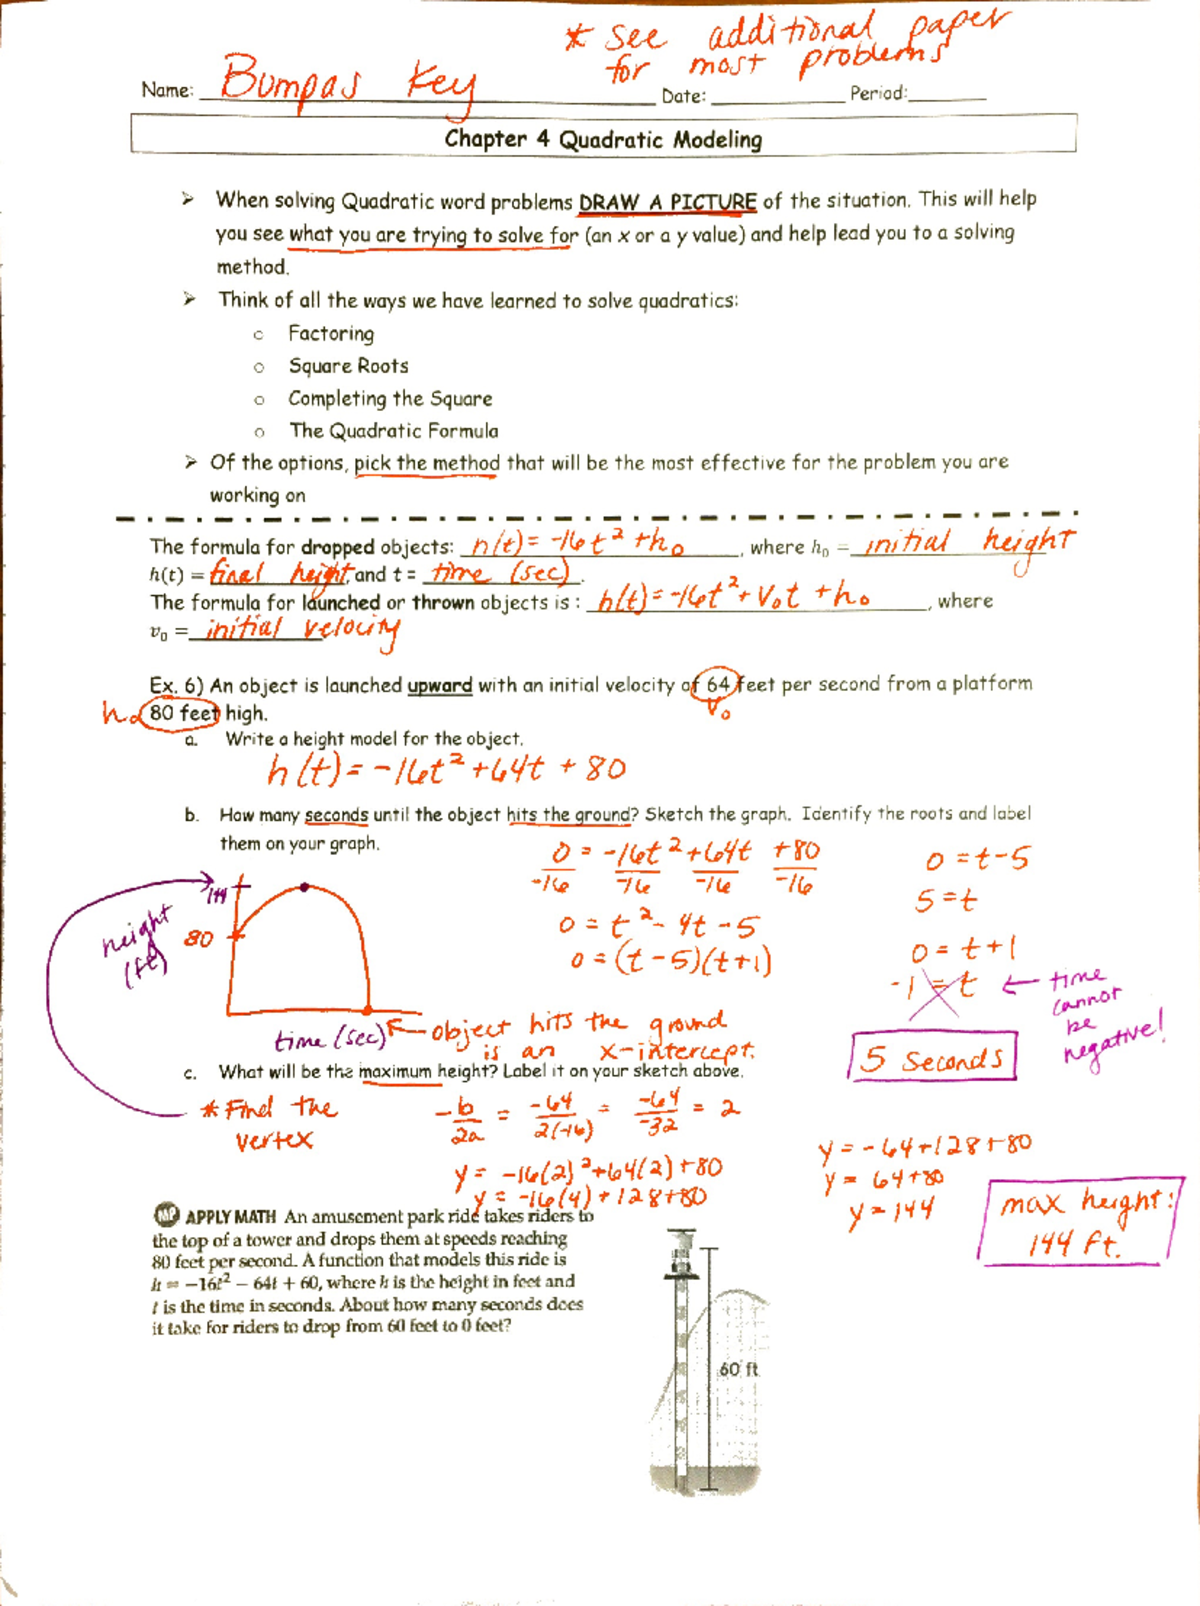 * see additional paper
for most problems
Name: Bumpas Key Date: Period:
Chapter 4 Quadratic Modeling
➢ When solving Quadratic word problems DRAW A PICTURE of the situation. This will help
you see what you are trying to solve for (an x or a y value) and help lead you to a solving
method.
➢ Think of all the ways we have learned to solve quadratics:
o Factoring
o Square Roots
o Completing the Square
o The Quadratic Formula
➢ Of the options, pick the method that will be the most effective for the problem you are
working on
The formula for dropped objects: h(t) = -16t² + h₀, where h₀ = initial height
h(t) = final height, and t = time (sec).
The formula for launched or thrown objects is : h(t) = -16t² + v₀t + h₀, where
v₀ = initial velocity
Ex. 6) An object is launched upward with an initial velocity of 64 feet per second from a platform
h₀ 80 feet high. v₀
a. Write a height model for the object.
h(t) = -16t² + 64t + 80
b. How many seconds until the object hits the ground? Sketch the graph. Identify the roots and label
them on your graph.
0 = -16t² + 64t + 80
-16 -16 -16 -16
0 = t² - 4t - 5
0 = (t - 5)(t + 1)
0 = t - 5
5 = t
0 = t + 1
-1 = t ← time
cannot
be
negative!
5 seconds
144
80
height
(ft)
time (sec) ← object hits the ground
is an x-intercept.
c. What will be the maximum height? Label it on your sketch above.
* Find the
vertex
-b/2a = -64/2(-16) = -64/-32 = 2
y = -16(2)² + 64(2) + 80
y = -16(4) + 128 + 80
y = -64 + 128 + 80
y = 64 + 80
y = 144
max height:
144 ft.
MP APPLY MATH An amusement park ride takes riders to
the top of a tower and drops them at speeds reaching
80 feet per second. A function that models this ride is
h = −16t² − 64t + 60, where h is the height in feet and
t is the time in seconds. About how many seconds does
it take for riders to drop from 60 feet to 0 feet?
60 ft